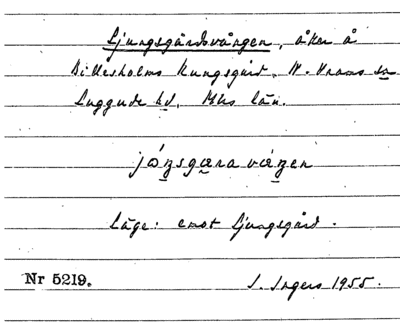 Ljungsgårdsvången, åker å
Billesholms Kungsgård, N. Vrams sn
Luggude hd, Mhs län.
Läge: emot Ljungsgård.
Nr 5219. J. Ingers 1955.